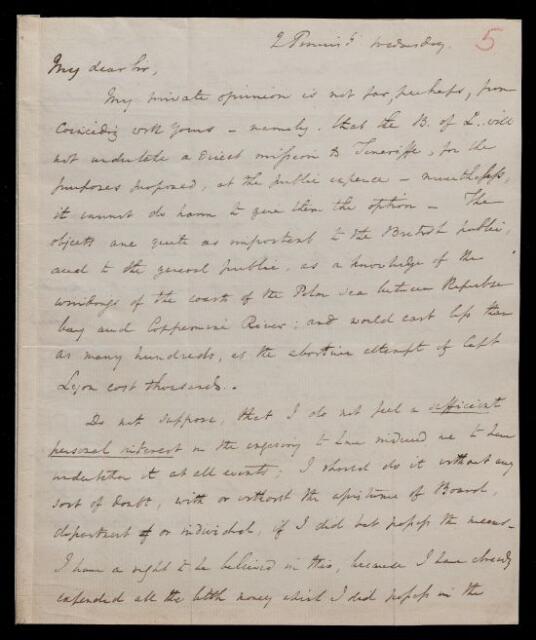 Wednesday. 5
My dear Sir,
My private opinion is not far, perhaps, from
coinciding with yours – namely. that the B. of L. will
not undertake a direct mission to Teneriffe, for the
purposes proposed, at the public expence – nevertheless,
it cannot do harm to give them the option – The
objects are quite as important to the British public,
and to the general public, as a knowledge of the
windings of the coasts of the Polar sea between Repulse
bay and Coppermine River: and would cost less than
as many hundreds, as the abortive attempt of Capt
Lyon cost thousands. –
Do not suppose, that I do not feel a sufficient
personal interest in the enquiry to have induced me to have
undertaken it at all events; I should do it without any
sort of doubt, with or without the assistance of Board,
department or individual, if I did but possess the means –
I have a right to be believed in this, because I have already
expended all the little money which I did possess in the